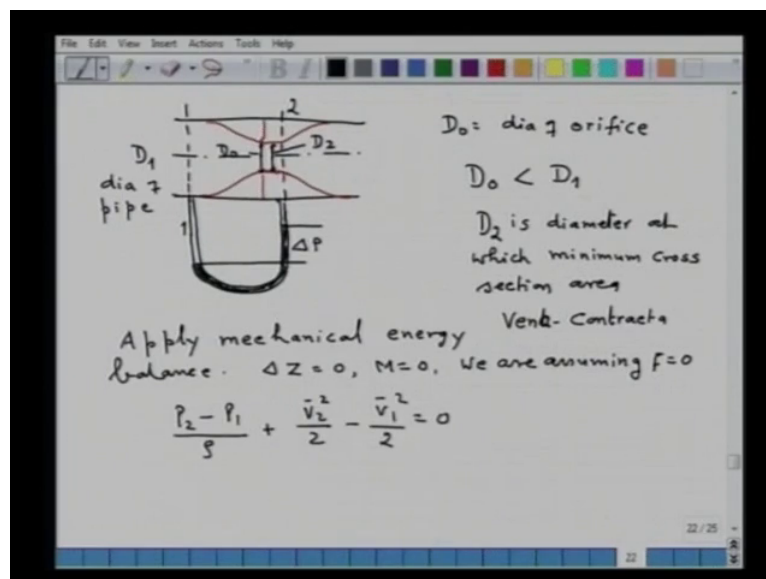 File Edit View Insert Actions Tools Help
B I
1 2
D₀ = dia of orifice
D₁ D₀ D₂
dia of
pipe
D₀ < D₁
1
ΔP
D₂ is diameter at
which minimum cross
section area
Vena-Contracta
Apply mechanical energy
balance. ΔZ = 0, M = 0, we are assuming F = 0
(P₂ - P₁)/ρ + v̄₂²/2 - v̄₁²/2 = 0
22/25
22